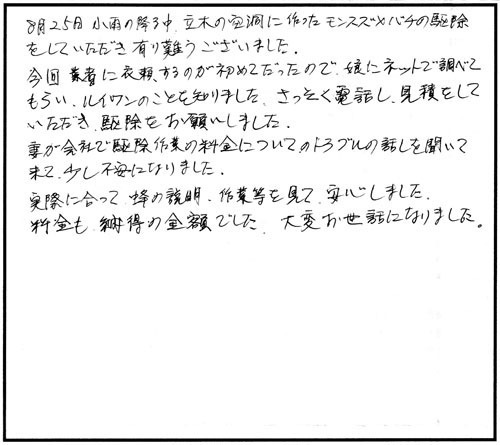 8月25日 小雨の降る中、立木の空洞に作ったモンスズメバチの駆除
をしていただき有り難うございました。
今回 業者に依頼するのが初めてだったので、娘にネットで調べて
もらい、ルイワンのことを知りました。さっそく電話し、見積をして
いただき、駆除をお願いしました。
妻が会社で駆除作業の料金についてのトラブルの話しを聞いて
来て、少し不安になりました。
実際に合って、蜂の説明、作業等を見て、安心しました。
料金も、納得の金額でした、大変お世話になりました。